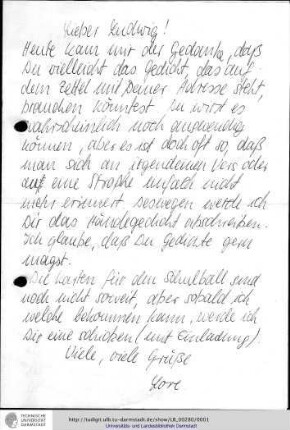 Lieber Ludwig!
Heute kam mir der Gedanke, daß
Du vielleicht das Gedicht, das auf
dem Zettel mit Deiner Adresse steht,
brauchen könntest. Du wirst es
wahrscheinlich noch auswendig
können, aber es ist doch oft so, daß
man sich an irgendeinen Vers oder
auf eine Strophe einfach nicht
mehr erinnert. Deswegen werde ich
Dir das Händegedicht abschreiben.
Ich glaube, daß Du Gedichte gern
magst.
Die Karten für den Schulball sind
noch nicht soweit, aber sobald ich
welche bekommen kann, werde ich
Dir eine schicken (mit Einladung).
Viele, viele Grüße
Lore
TECHNISCHE
UNIVERSITÄT
DARMSTADT
http://tudigit.ulb.tu-darmstadt.de/show/LB_00290/0001
Universitäts- und Landesbibliothek Darmstadt